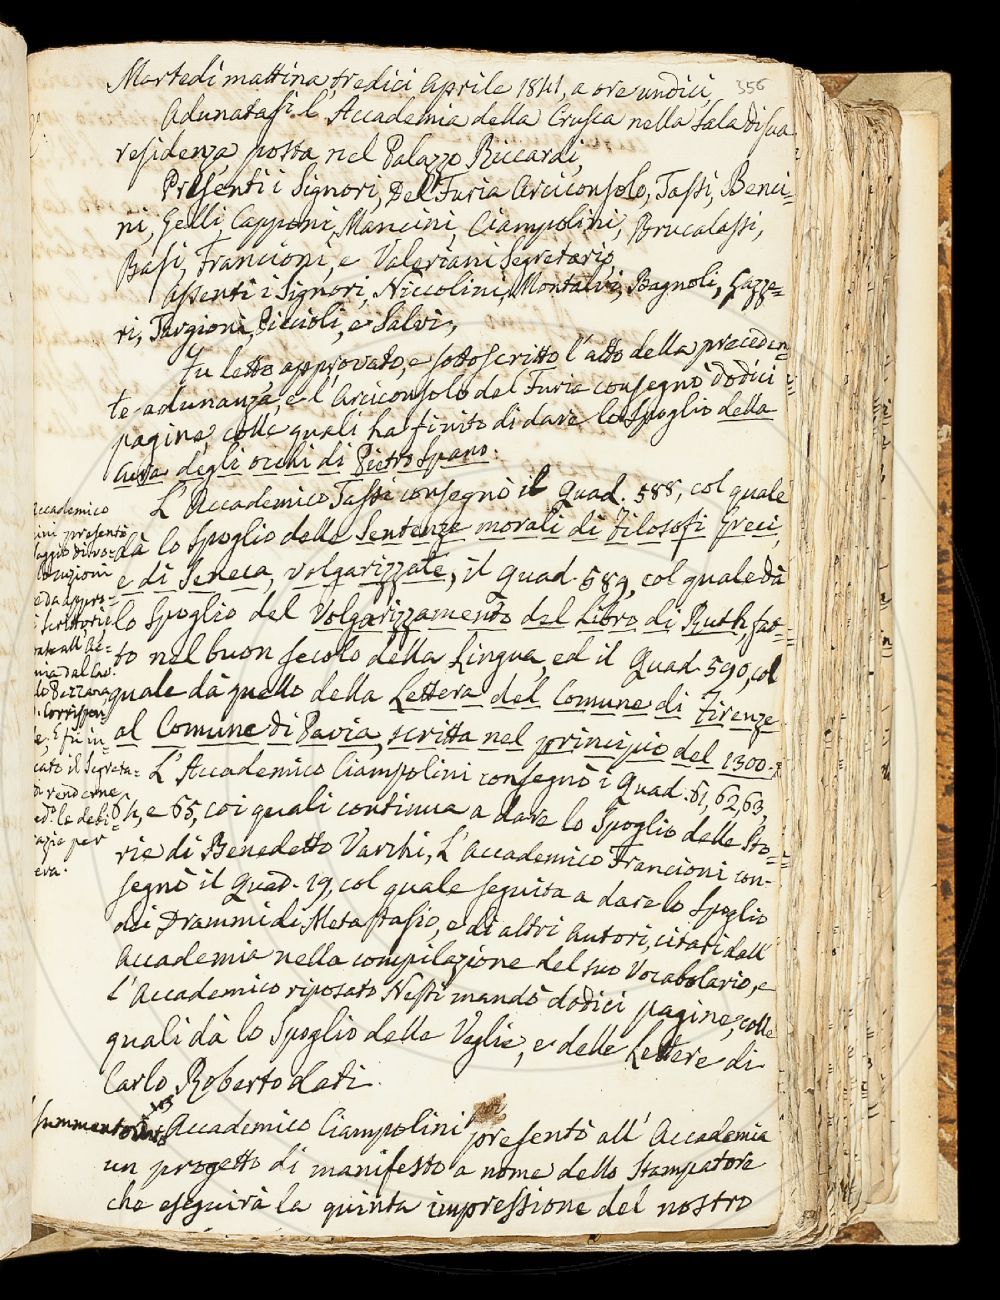 356
Martedi mattina, tredici Aprile 1841, a ore undici,
Adunatasi l'Accademia della Crusca nella Sala di sua
residenza posta nel Palazzo Riccardi,
Presenti i Signori, Del Furia Arciconsolo, Tassi, Benci=
ni, Gelli, Capponi, Mancini, Ciampolini, Brucalassi,
Basi, Francioni, e Valeriani Segretario
Assenti i Signori, Niccolini, Montalvi, Bagnoli, Gazze=
ri, Targioni, Piccioli, e Salvi,
Fu letto approvato, e sottoscritto l'atto della preceden=
te adunanza, e l'Arciconsolo del Furia consegnò dodici
pagine, colle quali ha finito di dare lo Spoglio della
Cura degli occhi di Pietro Spano.
L'Accademico Tassi consegnò il Quad. 588, col quale
dà lo Spoglio delle Sentenze morali di Filosofi Greci,
e di Seneca, volgarizzate, il Quad. 589, col quale dà
lo Spoglio del Volgarizzamento del Libro di Ruth, fat=
to nel buon secolo della Lingua, ed il Quad. 590, col
quale dà quello della Lettera del Comune di Firenze
al Comune di Pavia, scritta nel principio del 1300.
L'Accademico Ciampolini consegnò i Quad. 61, 62, 63,
64, e 65, coi quali continua a dare lo Spoglio delle Sto=
rie di Benedetto Varchi, L'Accademico Francioni con-
segnò il Quad. 19, col quale seguita a dare lo Spoglio
dei Drammi di Metastasio, e di altri Autori, citati dall'
Accademia nella compilazione del suo Vocabolario, e
l'Accademico riposato Nesti mandò dodici pagine, colle
quali dà lo Spoglio delle Veglie, e delle Lettere di
Carlo Roberto Dati.
Accademico
ini presentò
saggio di vo=
locuzioni
e da appro=
Scrittori
vate all'Ac=
mia dal Cav.
do Pezzana
Corrispon=
e, e fu in=
cato il Segreta=
di renderne
ed.o le debi=
azie per
era.
Summentovato
Accademico Ciampolini presentò all'Accademia
un progetto di manifesto a nome dello Stampatore
che eseguirà la quinta impressione del nostro